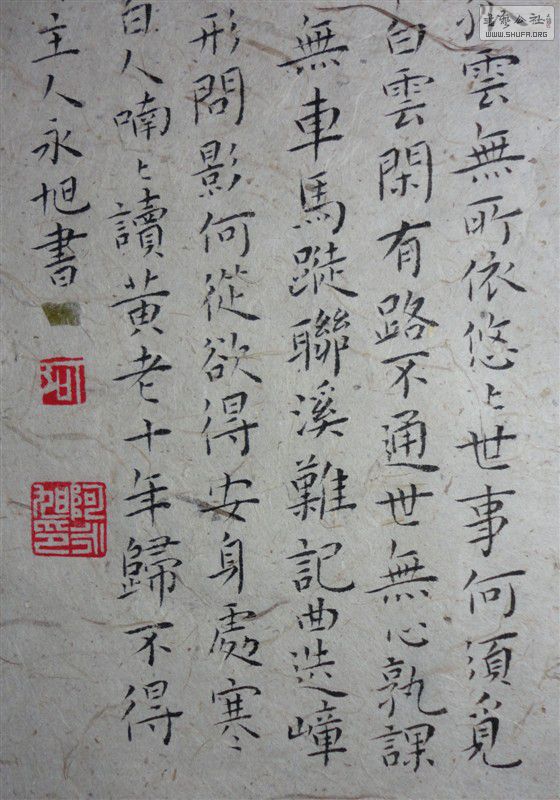 雲無所依悠〻世事何須覓
白雲閑有路不通世無心孰課
無車馬蹤聯溪難記曲嶂
形問影何從欲得安身處寒〻
白人喃〻讀黄老十年歸不得
主人永旭書
WWW.SHUFA.ORG